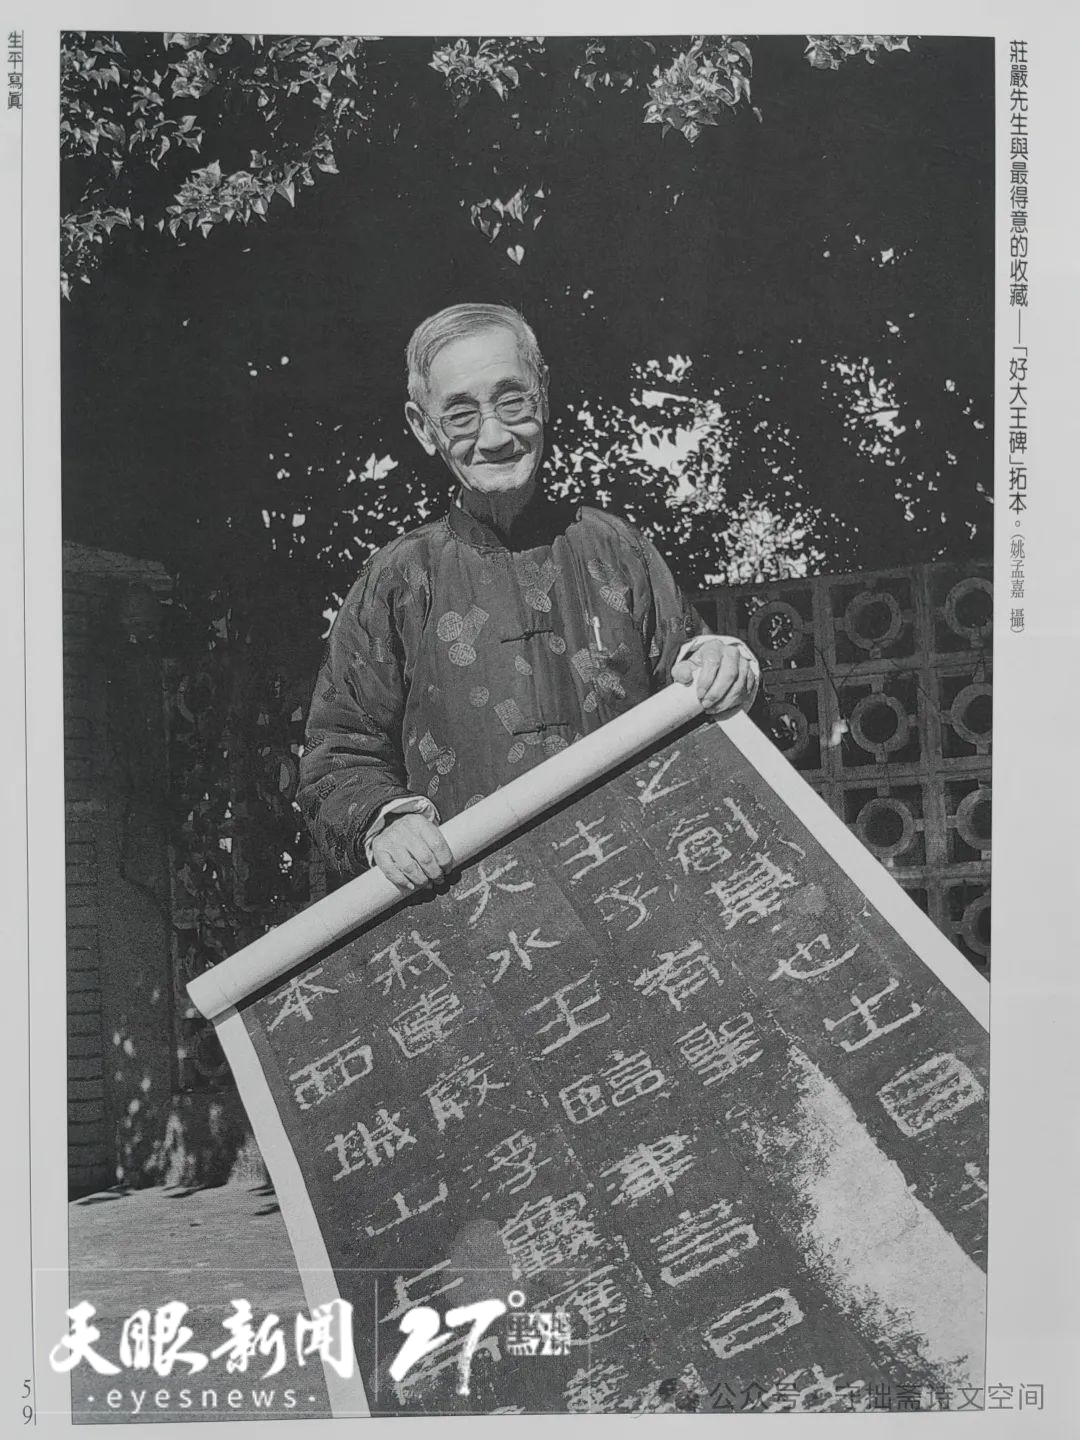 生平寫眞
莊嚴先生與最得意的收藏——「好大王碑」拓本。（姚孟嘉 攝）
之創基也出自
生子有聖
大水王臨津言曰
我連葭浮龜
本西城山上
天眼新闻
·eyesnews·
27°
黔灵
公众号·守拙斋诗文空间
59